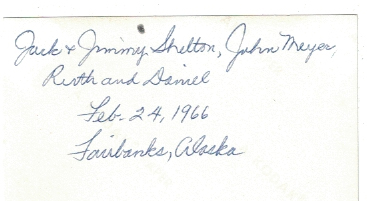 Jack & Jimmy Shelton, John Meyer,
Ruth and Daniel
Feb. 24, 1966
Fairbanks, Alaska